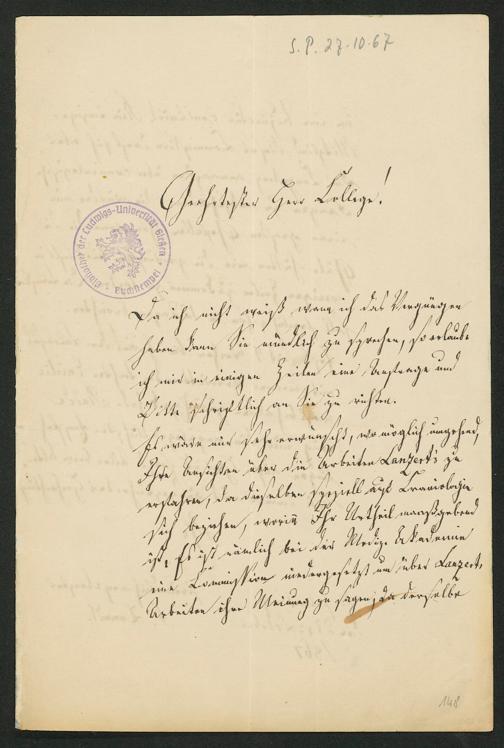 S. P. 27-10-67
Geehrtester Herr College!
Bibliothek der Ludwigs-Universität Gießen
Buchstempel
Da ich nicht weiß wann ich das Vergnügen
haben kann Sie mündlich zu sprechen, so erlaube
ich mir in einigen Zeilen eine Anfrage und
Bitte schriftlich an Sie zu richten.
Es wäre mir sehr erwünscht, wo möglich umgehend,
Ihre Ansichten über die Arbeiten Lanzert's zu
erfahren, da dieselben speziell auf Craniologie
sich beziehen, worin Ihr Urtheil maaßgebend
ist. Es ist nämlich bei der Mediz. Akademie
eine Commission niedergesetzt um über Lanzerts
Arbeiten ihre Meinung zu sagen, da derselbe
148